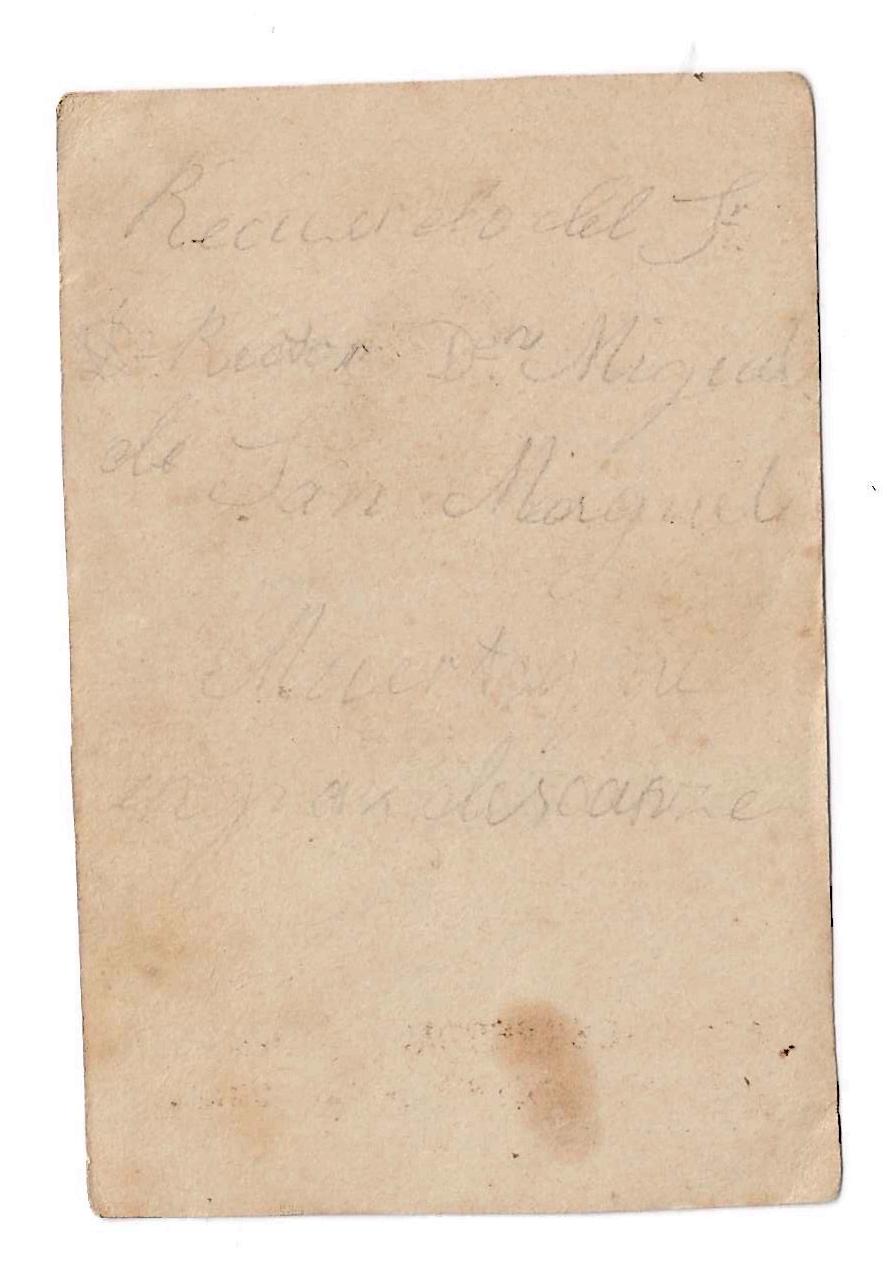 Recuerdo del Sr
Dr Rector Dn Miguel
de San Miguel
Muerto
en paz descanze